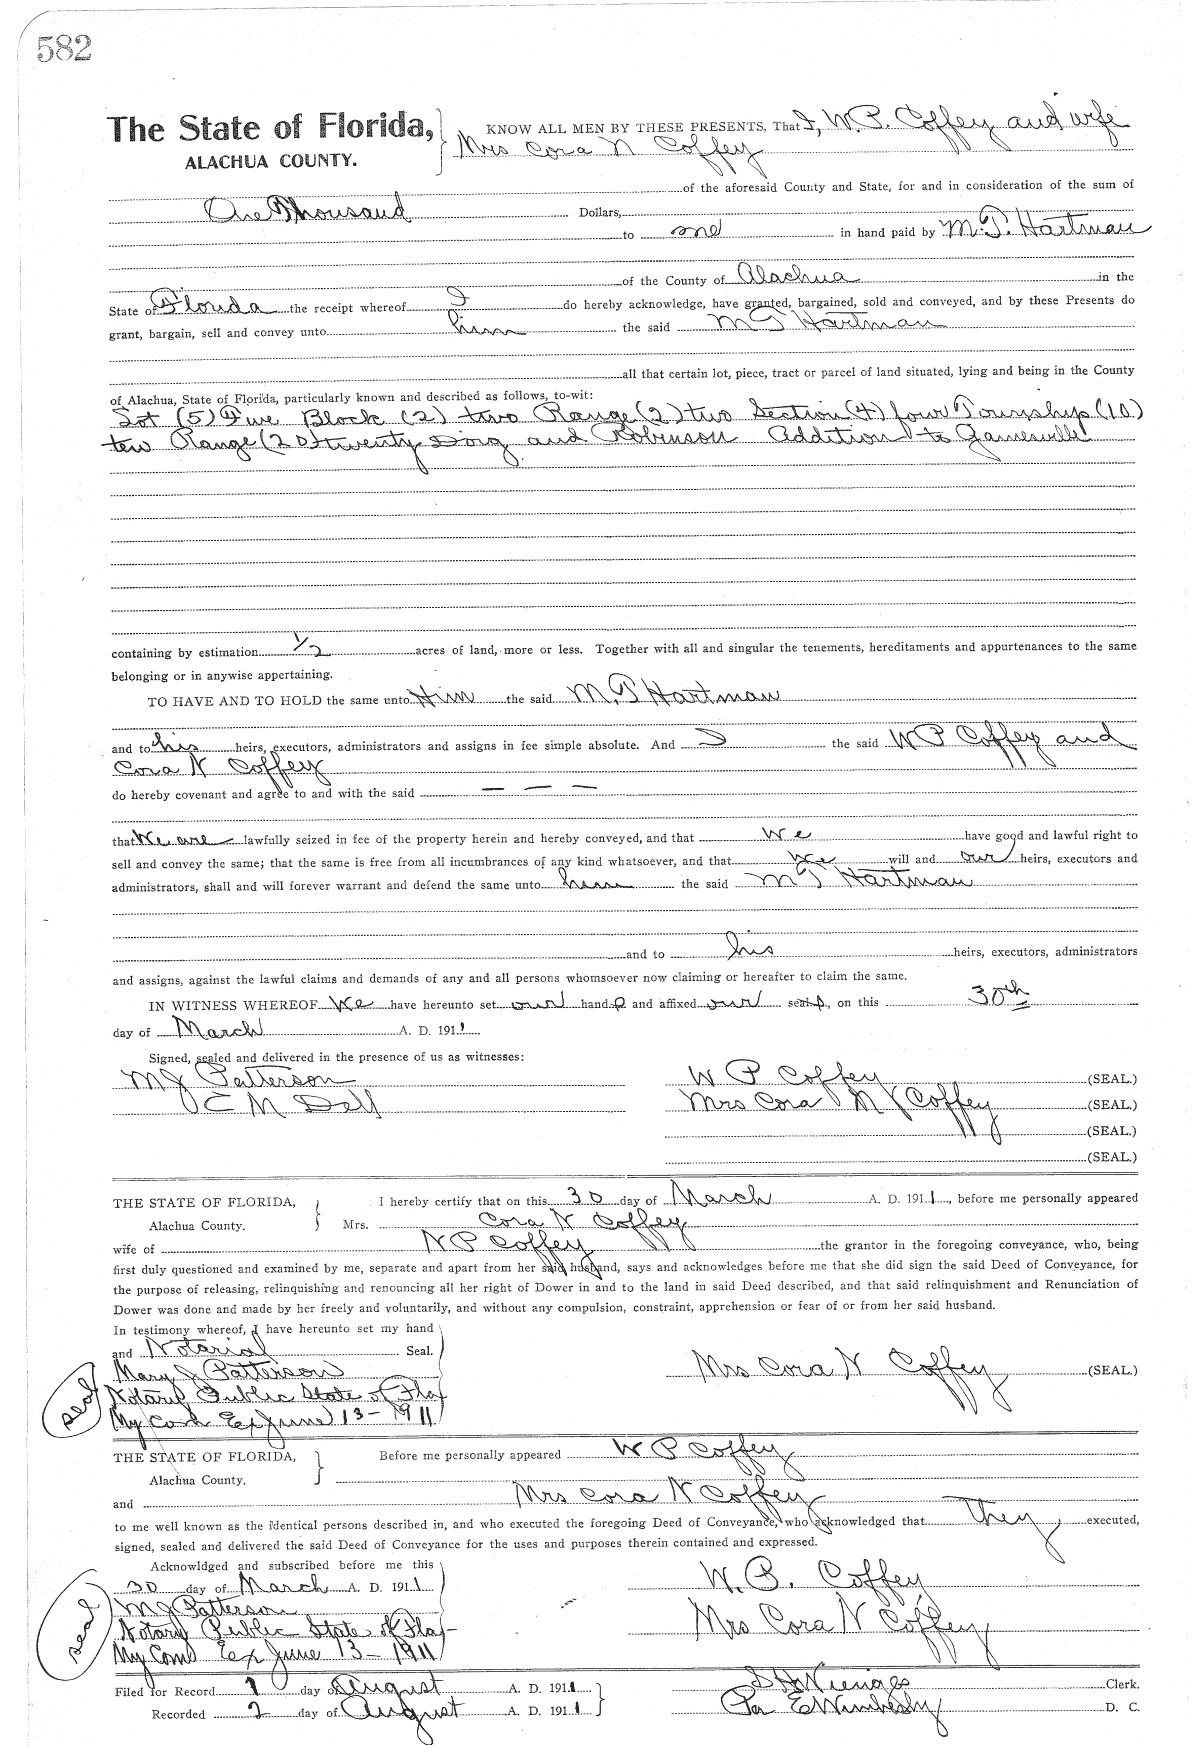 582
The State of Florida, KNOW ALL MEN BY THESE PRESENTS, That I, W. P. Coffey and wife
ALACHUA COUNTY. Mrs Cora N Coffey
of the aforesaid County and State, for and in consideration of the sum of
One Thousand Dollars,
to me in hand paid by M. T. Hartman
of the County of Alachua in the
State of Florida the receipt whereof I do hereby acknowledge, have granted, bargained, sold and conveyed, and by these Presents do
grant, bargain, sell and convey unto him the said M T Hartman
all that certain lot, piece, tract or parcel of land situated, lying and being in the County
of Alachua, State of Florida, particularly known and described as follows, to-wit:
Lot (5) Five Block (2) two Range (2) two Section (4) four Township (10)
ten Range (20) twenty Doig and Robinson Addition to Gainesville
containing by estimation 1/2 acres of land, more or less. Together with all and singular the tenements, hereditaments and appurtenances to the same
belonging or in anywise appertaining.
TO HAVE AND TO HOLD the same unto Him the said M. T Hartman
and to his heirs, executors, administrators and assigns in fee simple absolute. And I the said W P Coffey and
Cora N Coffey
do hereby covenant and agree to and with the said — — —
that We are lawfully seized in fee of the property herein and hereby conveyed, and that We have good and lawful right to
sell and convey the same; that the same is free from all incumbrances of any kind whatsoever, and that We will and our heirs, executors and
administrators, shall and will forever warrant and defend the same unto him the said M T Hartman
and to his heirs, executors, administrators
and assigns, against the lawful claims and demands of any and all persons whomsoever now claiming or hereafter to claim the same.
IN WITNESS WHEREOF We have hereunto set our hands and affixed our seals, on this 30th
day of March A. D. 1911
Signed, sealed and delivered in the presence of us as witnesses:
M J Patterson W P Coffey (SEAL.)
E M Dell Mrs Cora N Coffey (SEAL.)
(SEAL.)
(SEAL.)
THE STATE OF FLORIDA, I hereby certify that on this 30 day of March A. D. 1911, before me personally appeared
Alachua County. Mrs. Cora N Coffey
wife of W P Coffey the grantor in the foregoing conveyance, who, being
first duly questioned and examined by me, separate and apart from her said husband, says and acknowledges before me that she did sign the said Deed of Conveyance, for
the purpose of releasing, relinquishing and renouncing all her right of Dower in and to the land in said Deed described, and that said relinquishment and Renunciation of
Dower was done and made by her freely and voluntarily, and without any compulsion, constraint, apprehension or fear of or from her said husband.
In testimony whereof, I have hereunto set my hand
and Notarial Seal.
Mary J Patterson Mrs Cora N Coffey (SEAL)
seal Notary Public State of Fla
My Com Ex June 13 - 1911
THE STATE OF FLORIDA, Before me personally appeared W P Coffey
Alachua County.
and Mrs Cora N Coffey
to me well known as the identical persons described in, and who executed the foregoing Deed of Conveyance, who acknowledged that they executed,
signed, sealed and delivered the said Deed of Conveyance for the uses and purposes therein contained and expressed.
Acknowldged and subscribed before me this
30 day of March A. D. 1911 W. P. Coffey
M J Patterson
seal Notary Public State of Fla- Mrs Cora N Coffey
My Com Ex June 13 - 1911
Filed for Record 1 day of August A. D. 1911 S H Wienges Clerk.
Recorded 2 day of August A. D. 1911 Per E Wimberly D. C.